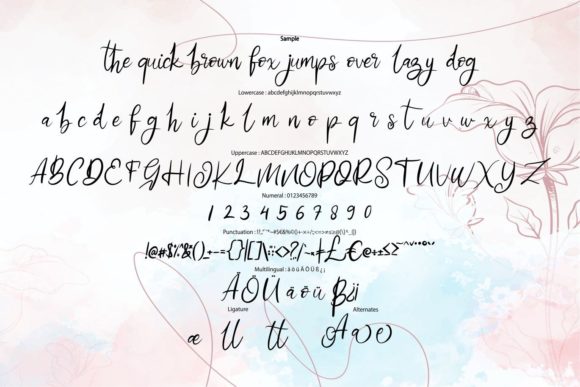 Sample
the quick brown fox jumps over lazy dog
Lowercase : abcdefghijklmnopqrstuvwxyz
a b c d e f g h i j k l m n o p q r s t u v w x y z
Uppercase : ABCDEFGHIJKLMNOPQRSTUVWXYZ
ABCDEFGHIJKLMNOPQRSTUVWXYZ
Numeral : 0123456789
1 2 3 4 5 6 7 8 9 0
Punctuation :
Multilingual : ä ö ü Ä Ö Ü ß ¿ ¡
Ä Ö Ü ä ö ü ß ¿ ¡
Ligature Alternates
æ ll tt A a e